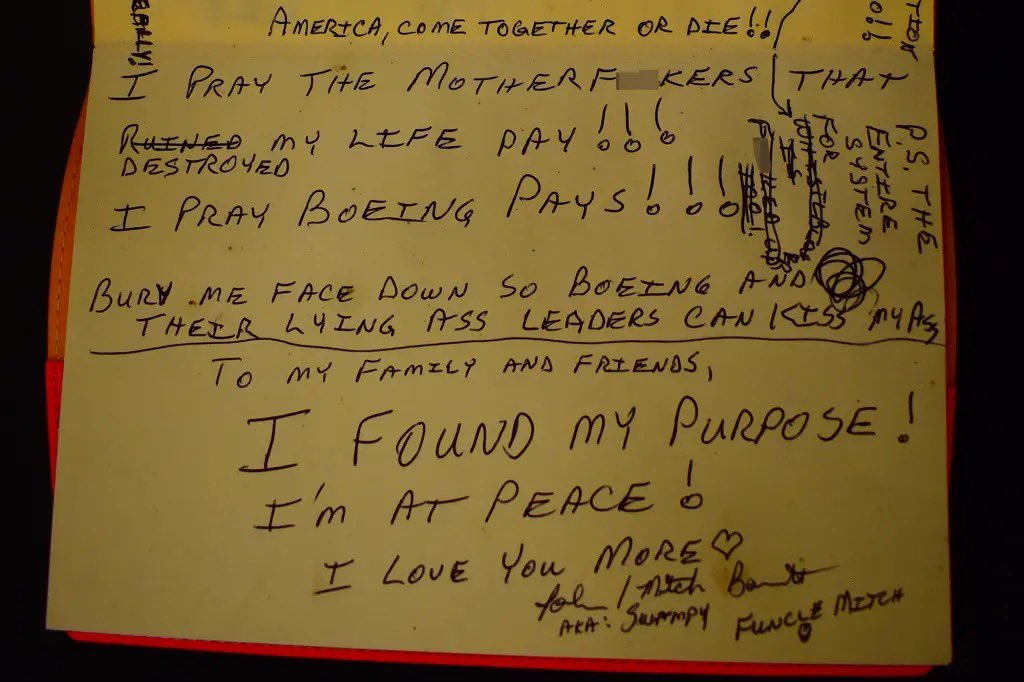 EALLY!
AMERICA, COME TOGETHER OR DIE!!
I PRAY THE MOTHERF KERS THAT
RUINED MY LIFE PAY!!!
DESTROYED
I PRAY BOEING PAYS!!!
BURY ME FACE DOWN SO BOEING AND
THEIR LYING ASS LEADERS CAN KISS MY ASS
TO MY FAMILY AND FRIENDS,
I FOUND MY PURPOSE!
I'M AT PEACE!
I LOVE YOU MORE♡
John / Mitch Barnett
AKA: SWAMPY FUNCLE MITCH
P.S. THE
ENTIRE
SYSTEM
FOR
IS
TION